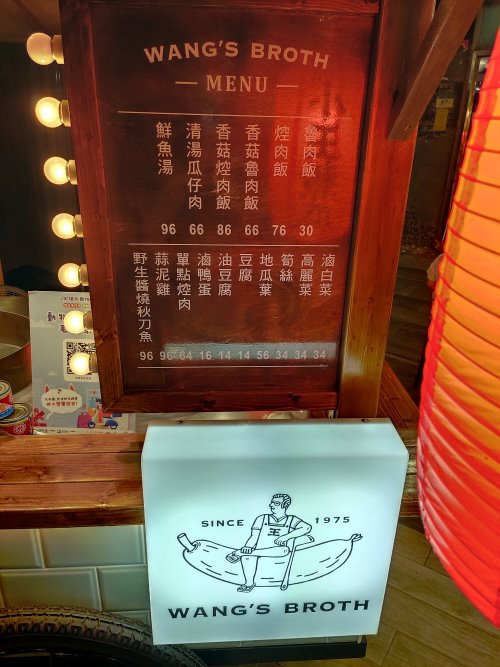 WANG'S BROTH
MENU
魯肉飯
焢肉飯
香菇魯肉飯
香菇焢肉飯
清湯瓜仔肉
鮮魚湯
96 66 86 66 76 30
滷白菜
高麗菜
筍絲
地瓜葉
豆腐
油豆腐
滷鴨蛋
單點焢肉
蒜泥雞
野生醬燒秋刀魚
96 96 64 16 14 14 56 34 34 34
SINCE 1975
王
WANG'S BROTH